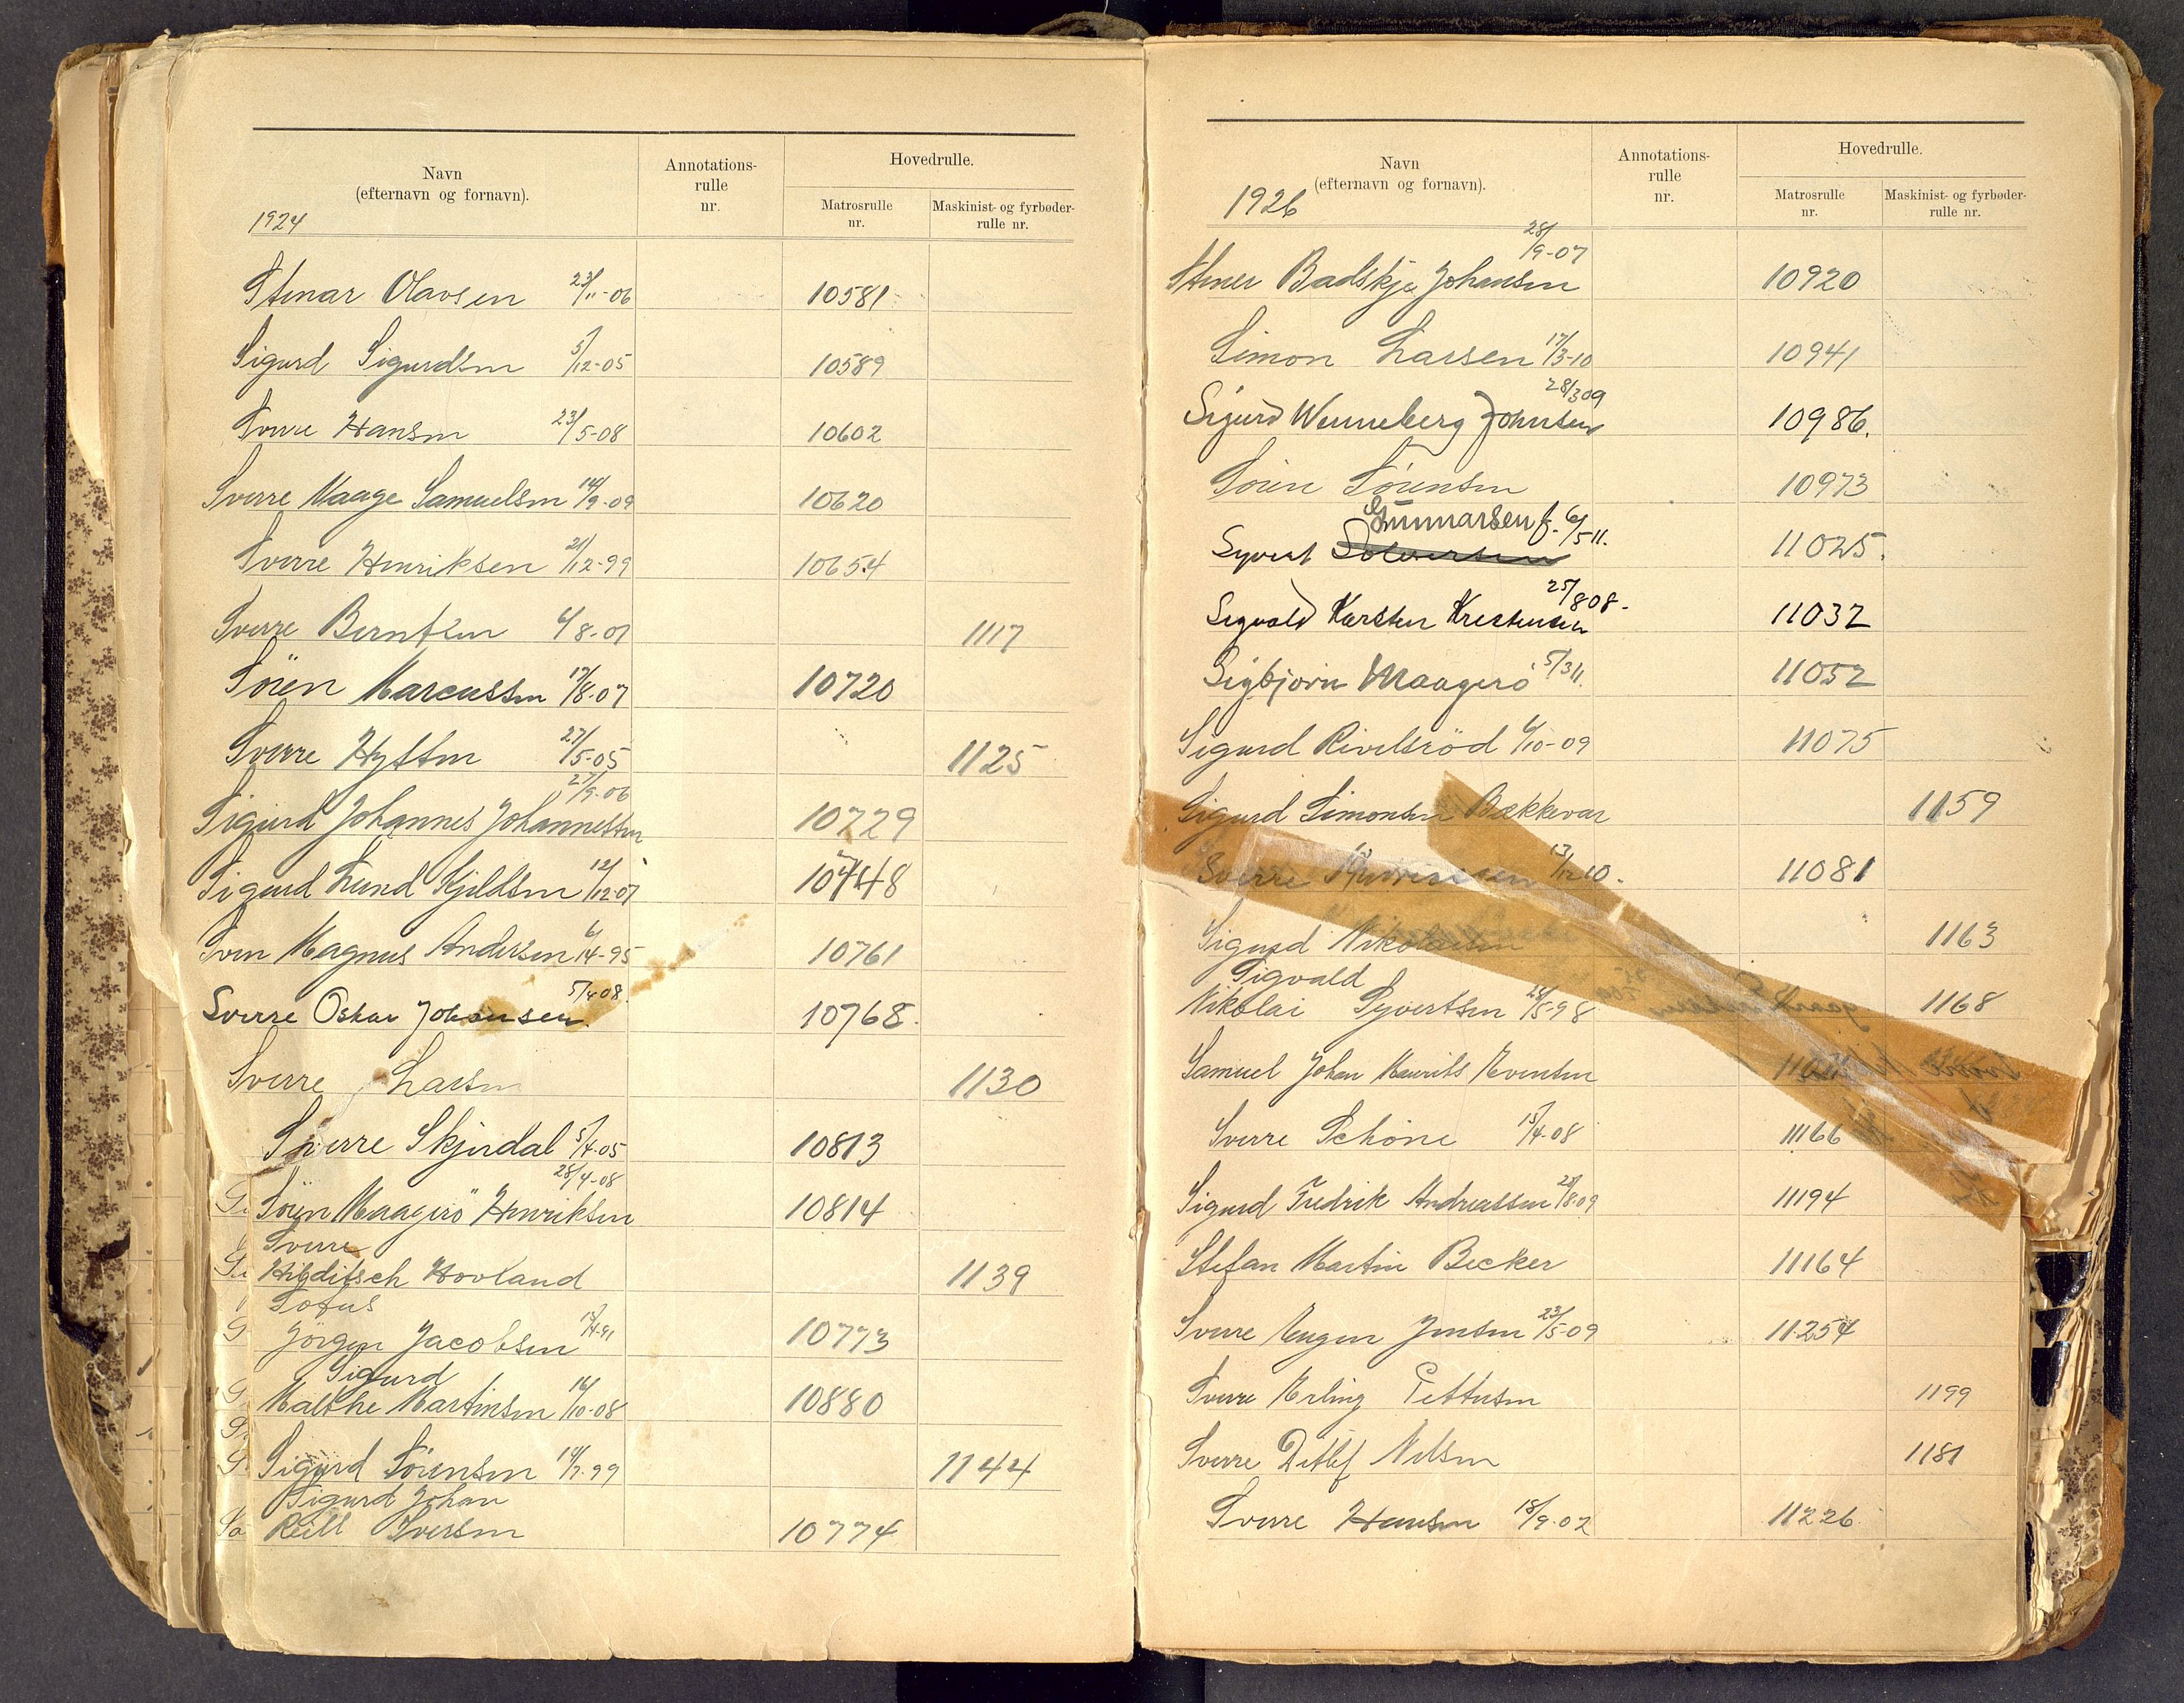 Navn
(efternavn og fornavn).
Annotations-
rulle
nr.
Hovedrulle.
Matrosrulle
nr.
Maskinist- og fyrbøder-
rulle nr.
1924
Stenar Olavsen 23/11-06 10581
Sigurd Sigurdsen 5/12-05 10589
Sverre Hansen 23/5-08 10602
Sverre Waage Samuelsen 14/9-09 10620
Sverre Henriksen 21/12-99 10654
Sverre Berntsen 6/8-01 1117
Sören Marcussen 17/8-07 10720
Sverre Hyttsen 27/5-05 1125
Sigurd Johannes Johannessen 27/9-06 10729
Sigurd Lund Kjeldsen 12/12-07 10748
Sven Magnus Andersen 6/4-95 10761
Sverre Oskar Johansen 5/4 08. 10768.
Sverre Larsen 1130
Sverre Skjerdal 5/4-05 10813
Sören Maagerö Henriksen 28/4-08 10814
Sverre
Hilditsch Hovland 1139
Tofus
Jörgen Jacobsen 10773
Sigurd
Malthe Martinsen 16/10-08 10880
Sigurd Sörensen 14/7-99 1144
Sigurd Johan
Reill Iversen 10774
Navn
(efternavn og fornavn).
Annotations-
rulle
nr.
Hovedrulle.
Matrosrulle
nr.
Maskinist- og fyrbøder-
rulle nr.
1926
28/9-07
Stener Badskje Johansen 10920
Simon Larsen 17/3-10 10941
28/3 09
Sigurd Wenneberg Johnsen 10986.
Sören Sörensen 10973
Gunnarsen f. 6/5 11.
Syvert Solversen 11025.
25/8 08-
Sigvald Karsten Krestensen 11032
Sigbjørn Maagerö 5/3 11. 11052
Sigurd Rivelsröd 6/10-09 11075
Sigurd Simonsen Bækkevar 1159
Sverre 13/12 10. 11081
Sigurd Nikolaisen 1163
Sigvald
Nikolai Syvertsen 24/5-98 1168
Samuel Johan Maurits Evensen
Sverre Schöne 15/4-08 11166
Sigurd Fredrik Andreassen 28/8-09 11194
Stefan Martin Becker 11164
Sverre Eugen Jensen 23/5-09 11254
Sverre Erling Pettersen 1199
Sverre Ditlef Nilsen 1181
Sverre Hansen 18/9-02 11226